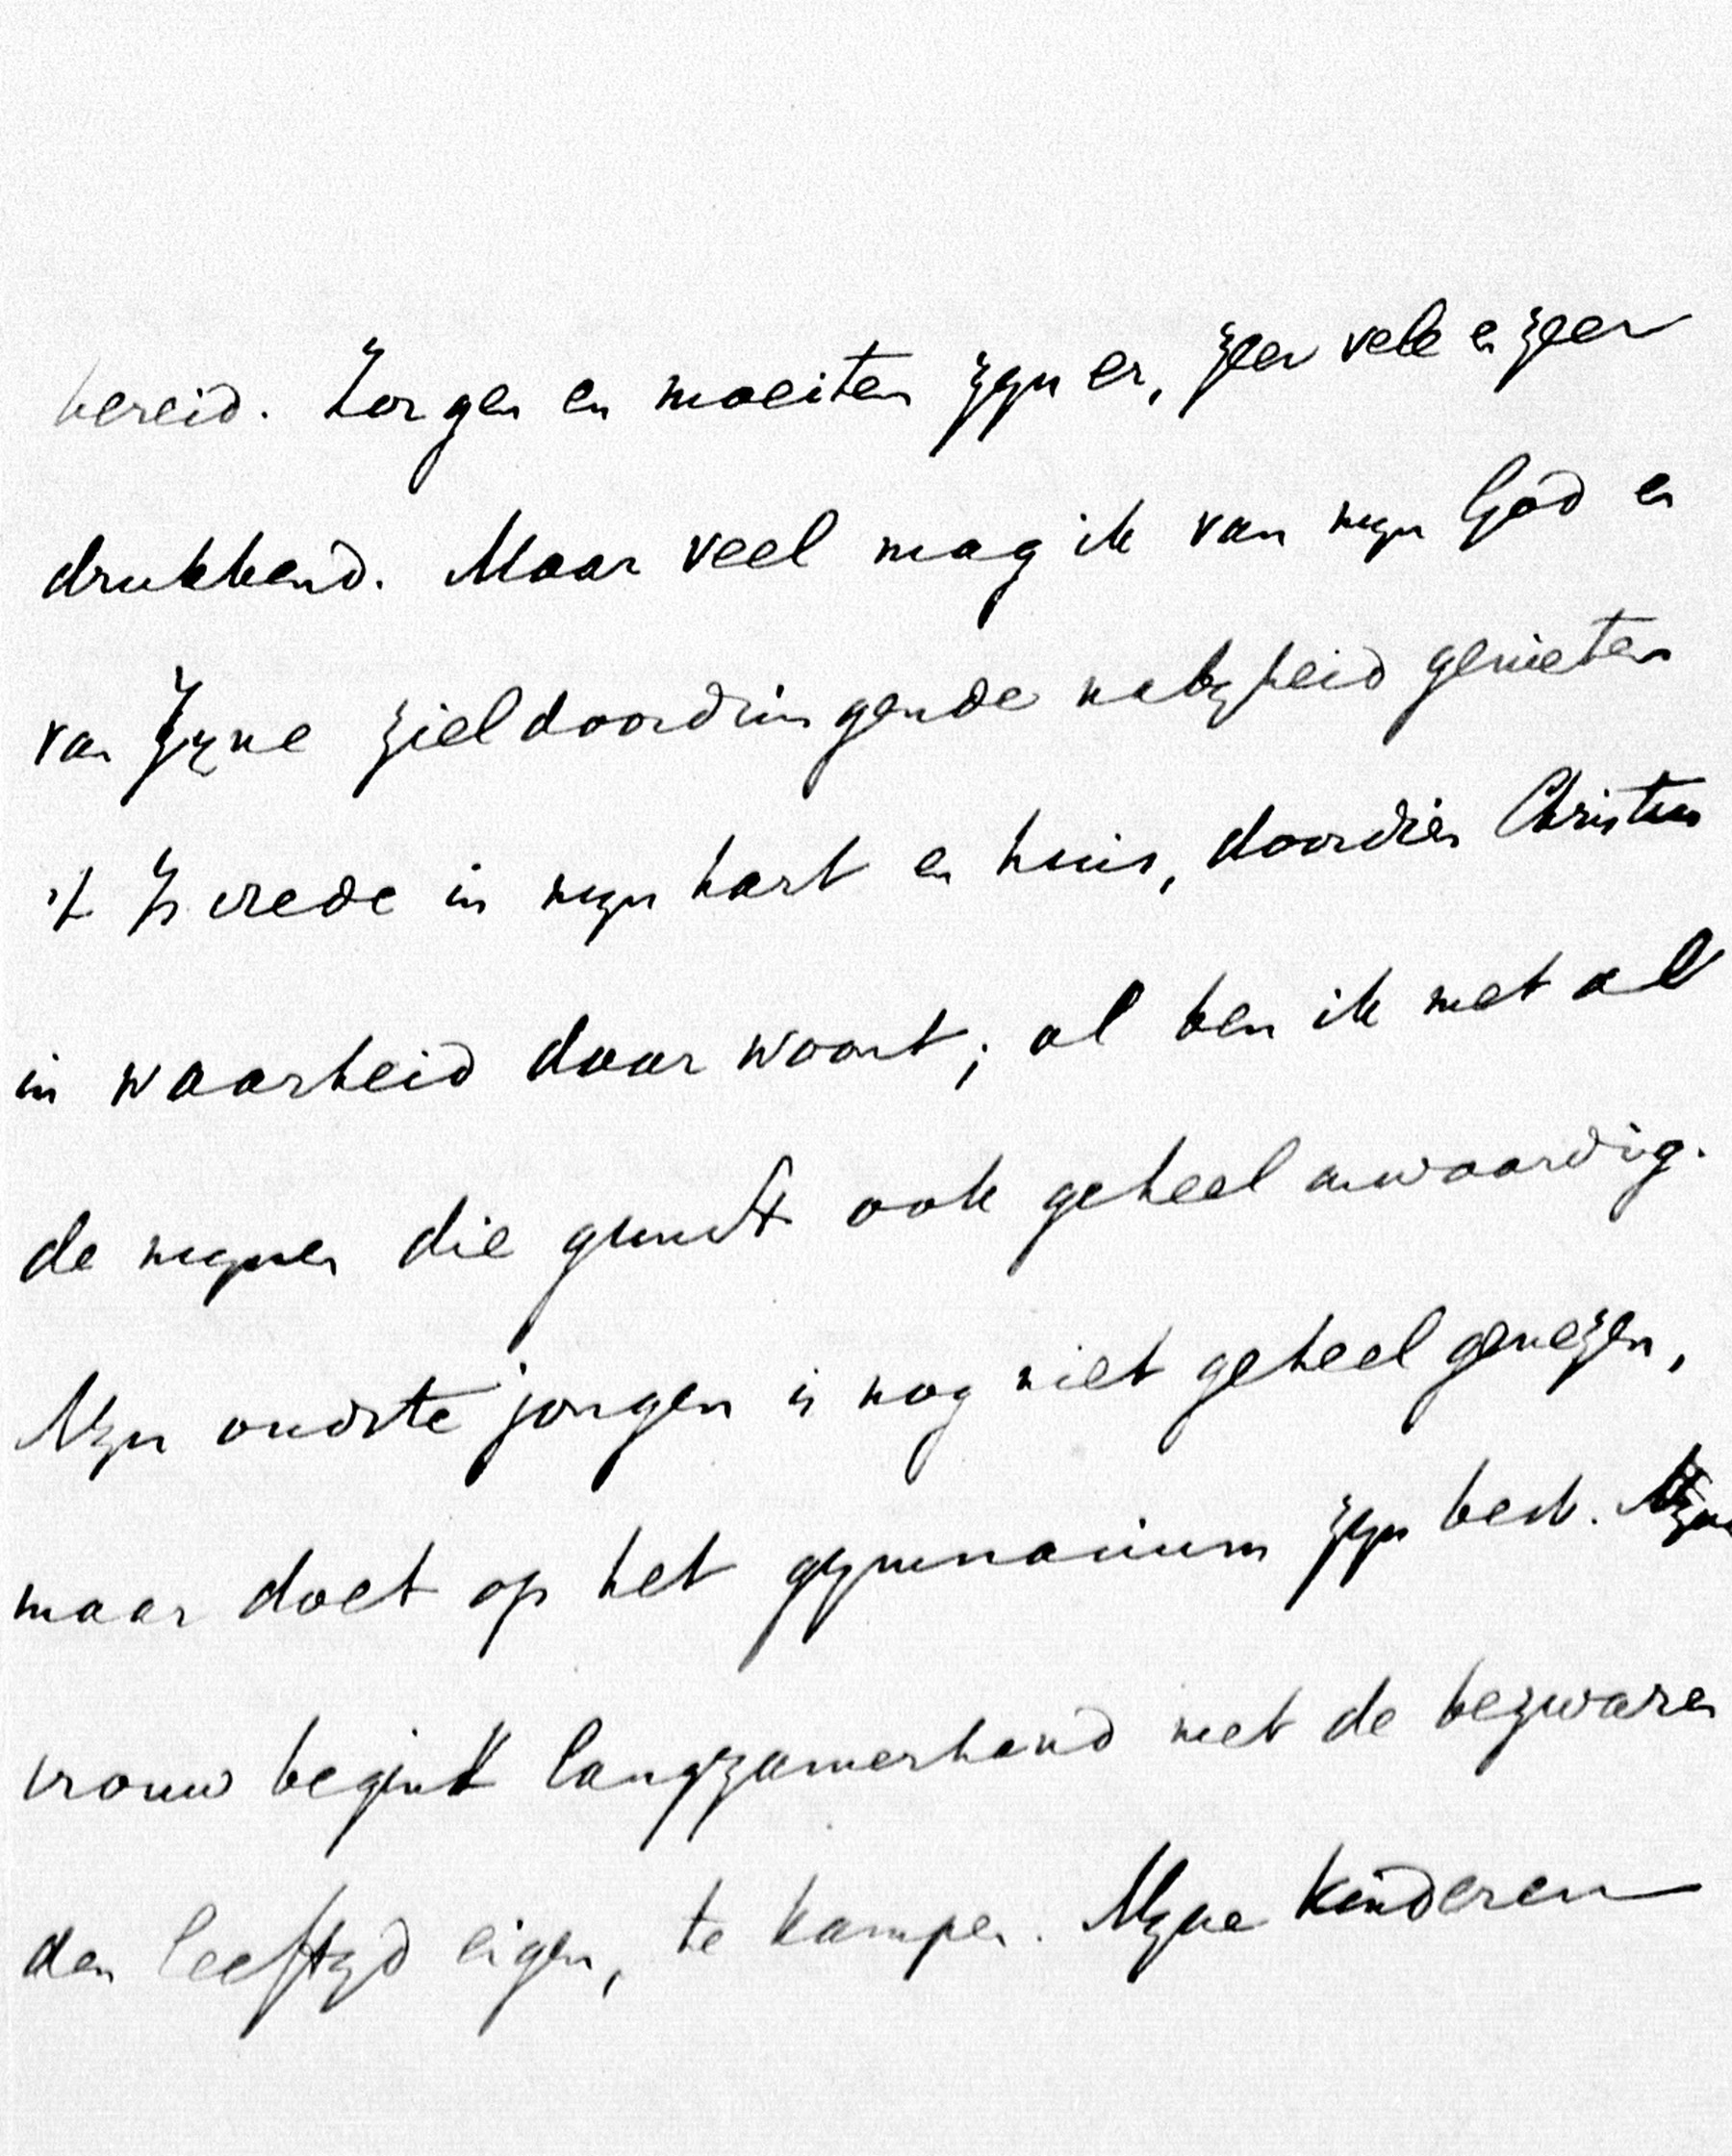 bereid. Zorgen en moeiten zijn er, zeer vele en zeer
drukkend. Maar veel mag ik van mijn God en
van Zijne zieldoordringende nabijheid genieten
't Is vrede in mijn hart en huis, doordien Christus
in waarheid daar woont; al ben ik met al
de mijnen die gunst ook geheel onwaardig.
Mijn oudste jongen is nog niet geheel genezen,
maar doet op het gymnasium zijn best. Mijne
vrouw begint langzamerhand met de bezwaren
den leeftijd eigen, te kampen. Mijne kinderen